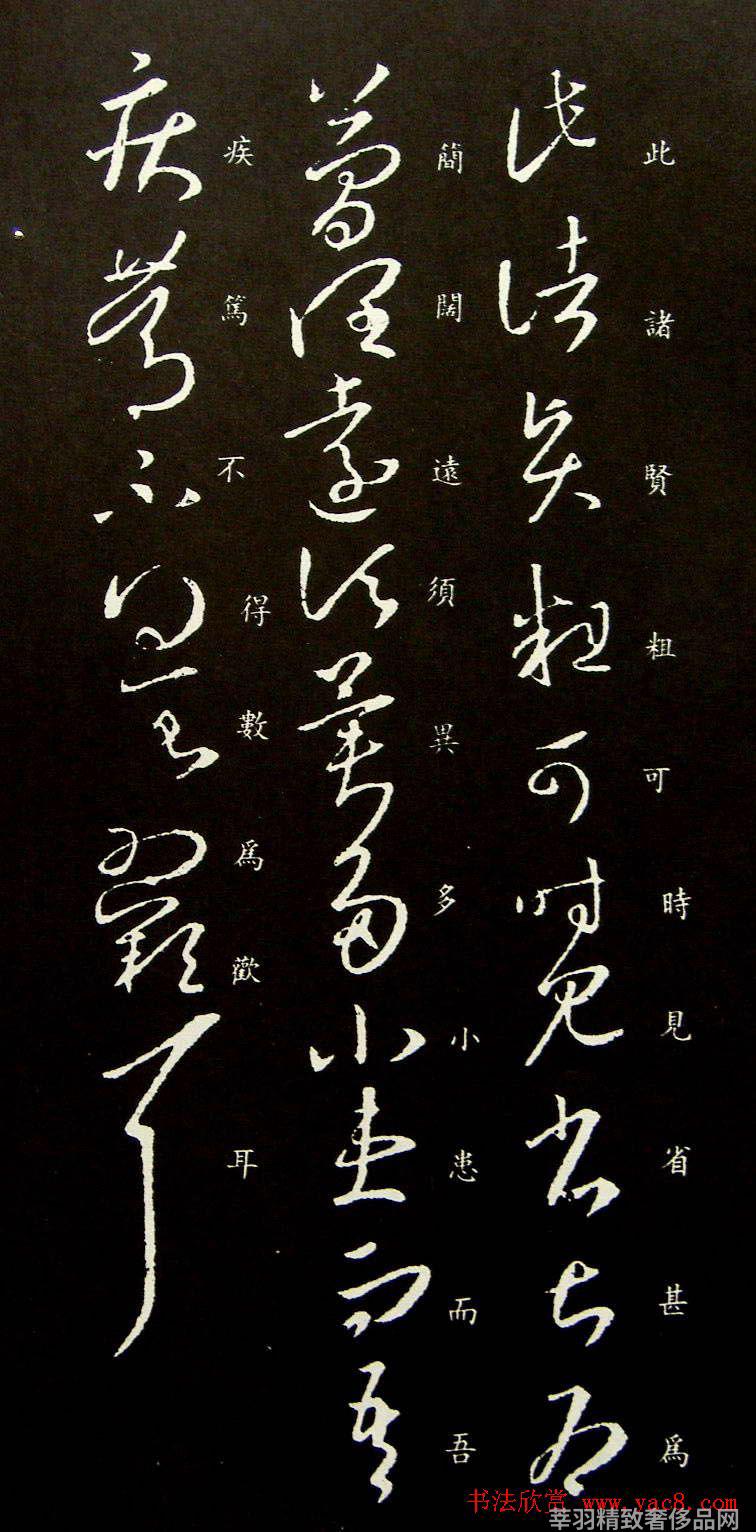 此諸賢粗可時見省甚爲
簡闊遠須異多小患而吾
疾篤不得數爲歡耳
书法欣赏 www.yac8.com
莘羽精致奢侈品网